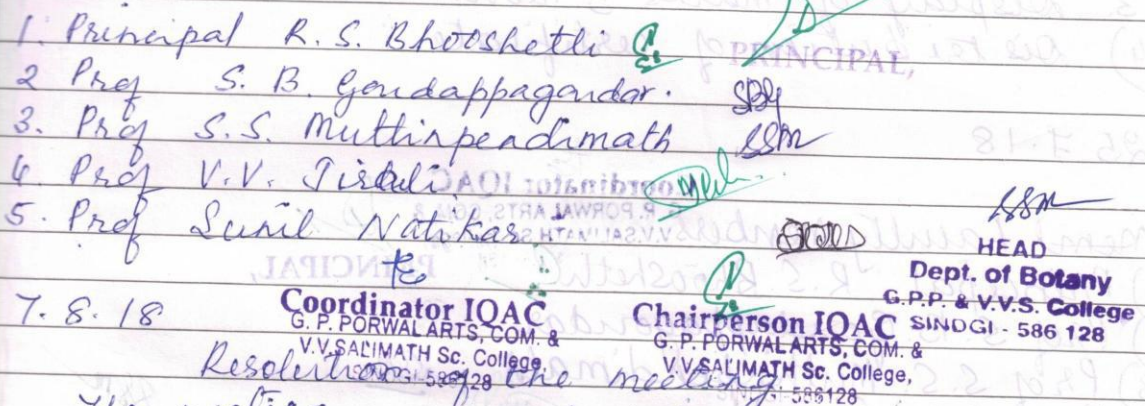 1. Principal R. S. Bhooshetti
PRINCIPAL,
2 Prof S. B. Goudappagoudar.
3. Prof S.S. Muttinpendimath SSM
4. Prof V.V. Tirduli
5. Prof Sunil Natikar
SSM
HEAD
Dept. of Botany
G.P.P. & V.V.S. College
SINDGI - 586 128
7. 8. 18
Coordinator IQAC
G. P. PORWAL ARTS, COM. &
V.V.SALIMATH Sc. College,
SINDGI-586128
Chairperson IQAC
G. P. PORWAL ARTS, COM. &
V.V.SALIMATH Sc. College,
586128
Resolution of the meeting